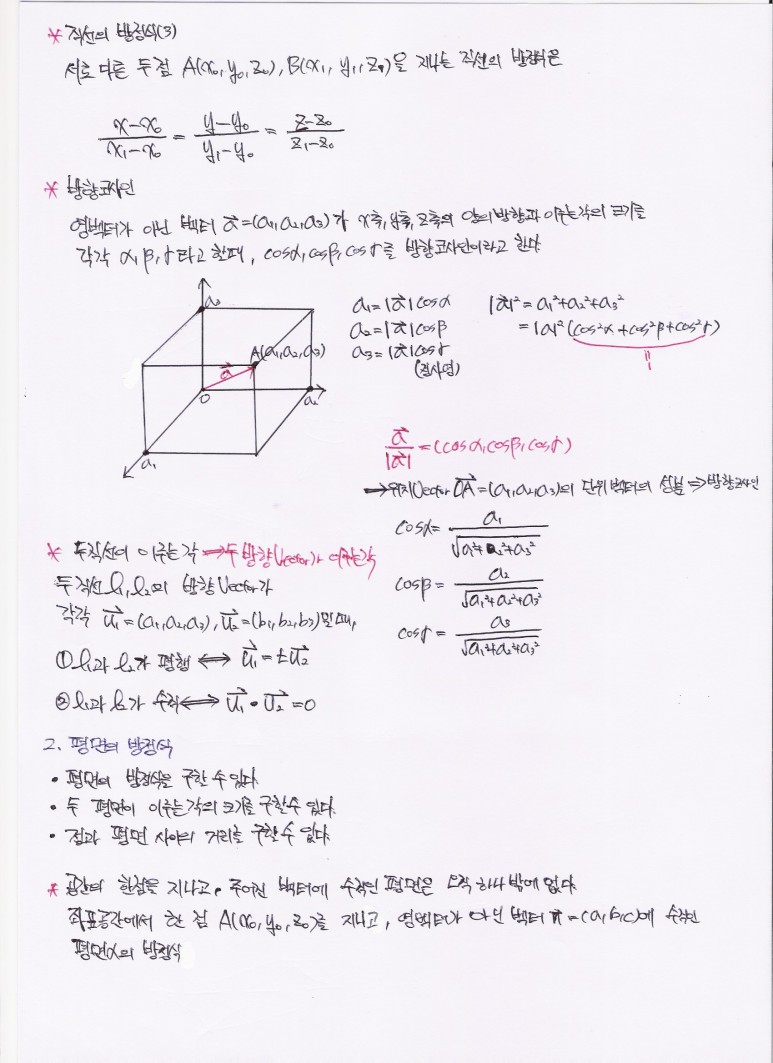 * 직선의 방정식(3)
서로 다른 두 점 A(x₀, y₀, z₀), B(x₁, y₁, z₁)을 지나는 직선의 방정식은
(x-x₀)/(x₁-x₀) = (y-y₀)/(y₁-y₀) = (z-z₀)/(z₁-z₀)
* 방향코사인
영벡터가 아닌 벡터 a⃗=(a₁, a₂, a₃)가 x축, y축, z축의 양의 방향과 이루는 각의 크기를
각각 α, β, γ라고 할 때, cosα, cosβ, cosγ를 방향코사인이라고 한다
a₃
A(a₁, a₂, a₃)
a⃗
O
a₂
a₁
a₁=|a⃗|cosα
a₂=|a⃗|cosβ
a₃=|a⃗|cosγ
(정사영)
|a⃗|²=a₁²+a₂²+a₃²
=|a|²(cos²α+cos²β+cos²γ)
=
1
a⃗/|a⃗| =(cosα, cosβ, cosγ)
→위치Vector OA⃗=(a₁, a₂, a₃)의 단위벡터의 성분 ⇒방향코사인
cosα= a₁/√(a₁²+a₂²+a₃²)
cosβ= a₂/√(a₁²+a₂²+a₃²)
cosγ= a₃/√(a₁²+a₂²+a₃²)
* 두직선이 이루는 각 ⇒두 방향Vector가 이루는각
두 직선 l₁, l₂의 방향 Vector가
각각 u₁⃗=(a₁, a₂, a₃), u₂⃗=(b₁, b₂, b₃)일 때,
① l₁과 l₂가 평행 ⟺ u₁⃗=±u₂⃗
② l₁과 l₂가 수직 ⟺ u₁⃗•u₂⃗=0
2. 평면의 방정식
• 평면의 방정식을 구할 수 있다.
• 두 평면이 이루는 각의 크기를 구할 수 있다.
• 점과 평면 사이의 거리를 구할 수 있다.
* 공간의 한점을 지나고, 주어진 벡터에 수직인 평면은 오직 하나 밖에 없다.
좌표공간에서 한 점 A(x₀, y₀, z₀)를 지나고, 영벡터가 아닌 벡터 n⃗=(a, b, c)에 수직인
평면α의 방정식